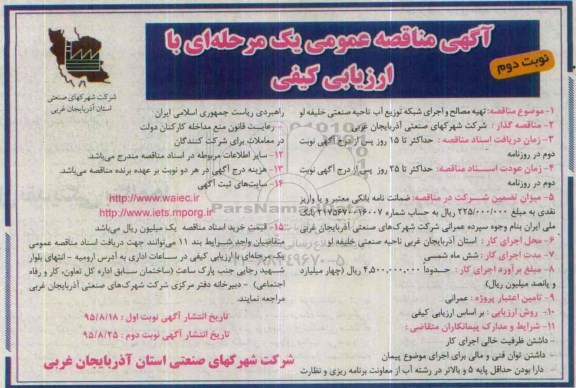 آگهی مناقصه عمومی یک مرحله‌ای با
ارزیابی کیفی
نوبت دوم
شرکت شهرکهای صنعتی
استان آذربایجان غربی
۱- موضوع مناقصه: تهیه مصالح و اجرای شبکه توزیع آب ناحیه صنعتی خلیفه لو
۲- مناقصه گذار : شرکت شهرکهای صنعتی آذربایجان غربی
۳- زمان دریافت اسناد مناقصه: حداکثر تا ۱۵ روز پس از درج آگهی نوبت
دوم در روزنامه
۴- زمان عودت اسناد مناقصه: حداکثر تا ۲۵ روز پس از درج آگهی نوبت
دوم در روزنامه
۵- میزان تضمین شرکت در مناقصه: ضمانت نامه بانکی معتبر و یا واریز
نقدی به مبلغ ۲۲۵/۰۰۰/۰۰۰ ریال به حساب شماره ۲۱۷۵۶۷۰۰۱۶۰۰۷ بانک
ملی ایران بنام وجوه سپرده عمرانی شرکت شهرکهای صنعتی آذربایجان غربی
۶- محل اجرای کار : استان آذربایجان غربی ناحیه صنعتی خلیفه لو
۷- مدت اجرای کار : شش ماه شمسی
۸- مبلغ برآورد اجرای کار : حدوداً ۴,۵۰۰,۰۰۰,۰۰۰ ریال (چهار میلیارد
و پانصد میلیون ریال)
۹- تامین اعتبار پروژه : عمرانی
۱۰- روش ارزیابی : بر اساس ارزیابی کیفی
۱۱- شرایط و مدارک پیمانکاران متقاضی :
- داشتن ظرفیت خالی اجرای کار
- داشتن توان فنی و مالی برای اجرای موضوع پیمان
- دارا بودن حداقل پایه ۵ و بالاتر در رشته آب از معاونت برنامه ریزی و نظارت
راهبردی ریاست جمهوری اسلامی ایران
- رعایت قانون منع مداخله کارکنان دولت
در معاملات برای شرکت کنندگان
۱۲- سایر اطلاعات مربوطه در اسناد مناقصه مندرج می‌باشد.
۱۳- هزینه درج آگهی در هر دو نوبت بر عهده برنده مناقصه می‌باشد.
۱۴- سایت‌های ثبت آگهی
http://www.waiec.ir
http://www.iets.mporg.ir
۱۵- قیمت خرید اسناد مناقصه یک میلیون ریال می‌باشد
متقاضیان واجد شرایط بند ۱۱ می‌توانند جهت دریافت اسناد مناقصه عمومی
یک مرحله‌ای با ارزیابی کیفی در ساعات اداری به آدرس ارومیه - انتهای بلوار
شهید رجایی جنب پارک ساعت (ساختمان سابق اداره کل تعاون، کار و رفاه
اجتماعی) - دبیرخانه دفتر مرکزی شرکت شهرکهای صنعتی آذربایجان غربی
مراجعه نمایند.
تاریخ انتشار آگهی نوبت اول : ۹۵/۸/۱۸
تاریخ انتشار آگهی نوبت دوم : ۹۵/۸/۲۵
شرکت شهرکهای صنعتی استان آذربایجان غربی